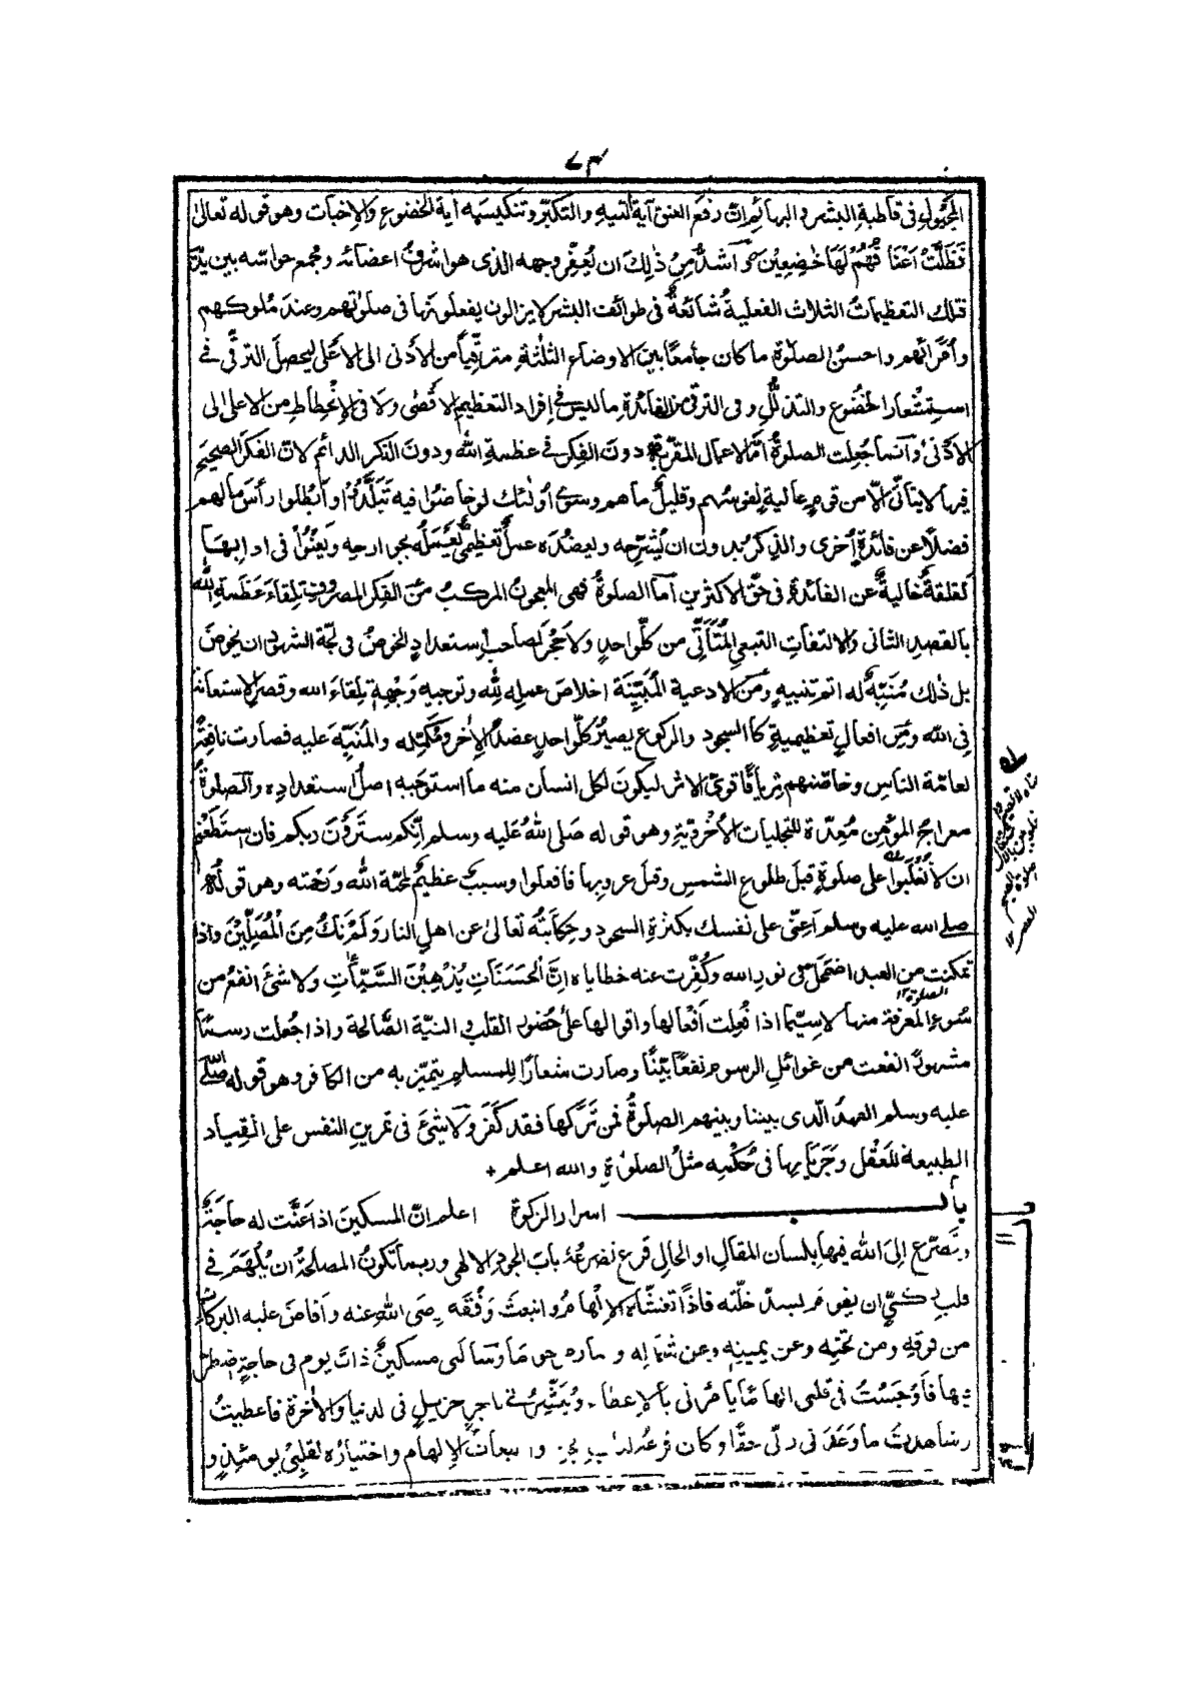 ٧٣
المجبول فى قاطبة البشر والبهائم ان رفع العنق آية التيه والتكبر وتنكيسه آية الخضوع والاخبات وهو قوله تعالىٰ
فَظَلَّتْ اَعْنَاقُهُمْ لَهَا خٰضِعِيْنَ واشدُّ مِنْ ذٰلِكَ ان يُعفِّر وجهه الذى هو اشرف اعضائه ومجمع حواسه بين يديه
فتلك التعظيمات الثلاث الفعلية شائعة فى طوائف البشر لا يزالون يفعلونها فى صلوٰتهم وعند ملوكهم
وأمرائهم واحسن الصلٰوة ما كان جامعًا بين الاوضاع الثلثة مترقيًا من الأدنى الى الاعلى ليحصل الترقى فى
استشعار الخضوع والتذلُّلِ وفى الترقى من الفائدة ما ليس فى إفراد التعظيم الاقصٰى ولا فى الانحطاط من الاعلى الى
الادنٰى وانما جُعلت الصلوة امَّ الاعمال المقرّبة دون الفكر فى عظمة الله ودون الذكر الدائم لان الفكر الصحيح
فيها لا يتأتى الا من قوم عالية نفوسهم وقليلٌ ما هم وسوى اولٰئك لو خاضوا فيه تَبَلَّدُوْا وابطلوا رأس مالهم
فضلًا عن فائدةٍ اُخرى والذكر بدون ان يُشرّحه ويعضده عملٌ تعظيمى يَعْمَلُه بجوارحه ويعنو فى ادابها
لَقلقةٌ خاليةٌ عن الفائدة فى حقّ الاكثرين امّا الصلوةُ فهى المعجونُ المركبُ من الفكر المصروف تِلقاءَ عَظَمةِ اللّٰه
بالقصد الثانى والالتفات التبعى المُتَأتِّى من كلّ واحدٍ ولا حَجْرَ لصاحب استعداد الخوض فى لجّة الشهود ان يخوض
بل ذلك مُنَبِّهٌ له اتم تنبيه ومن الادعية المُبَيِّنَة اخلاصَ عمله للّٰه وتوجيه وَجْهه تِلقاءَ الله وقصر الاستعانة
فى الله ومن افعالٍ تعظيميةٍ كالسجود والركوع يصير كلُّ واحدٍ عضدَ الاٰخر ومُكَمِّلَه والمُنَبِّهَ عليه فصارت نافعةً
لعامّة الناس وخاصّتهم ترياقًا قوىَّ الاثر ليكونَ لكل انسان منه ما استوجبه اصلُ استعداده والصلوةُ
معراجُ المؤمن مُعِدّة للتجليات الأُخْروية وهو قوله صلى اللهُ عليه وسلم انّكم سترون ربكم فان استطعتم
ان لا تُغْلَبوا على صلوٰةٍ قبل طلوع الشمس وقبل غروبها فافعلوا وسببٌ عظيمٌ لمحبّة الله ورحمته وهو قوله
صلے الله عليه وسلم اَعِنّى على نفسك بكثرةِ السجود وحكايتُه تعالىٰ عن اهل النار وَلَمْ نَكُ مِنَ الْمُصَلِّيْنَ واذا
تمكنت من العبد اضمحلّ فى نور الله وكُفِّرت عنه خطاياه اِنَّ الْحَسَنَاتِ يُذْهِبْنَ السَّيِّاٰتِ ولا شئَ انفع من
سُوءِ المعرفة منها لا سِيَّما اذا فُعِلت اَفْعالها واقوالها علىٰ حُضورِ القلب والنيّة الصّالحة واذا جُعلت رسمًا
مشهورًا نفعت من غوائل الرسوم نفعًا بيّنًا وصارت شعارًا للمسلم يتميّز به من الكافر وهو قوله صلّى الله
عليه وسلم العهدُ الّذى بيننا وبينهم الصلوةُ فمن تَرَكها فقد كَفَرَ ولا شئَ فى تمرين النفس على انقياد
الطبيعة للعَقْل وجَرَيانِها فى حُكْمِه مثلُ الصلوٰةِ والله اعلم +
باب اسرار الزكوة اعلم انّ المسكين اذا عَنَّت له حاجةٌ
وتضرّع إلى الله فيها بلسان المقال او الحال قرع تضرعُه بابَ الجود الالهى وربما تكونُ المصلحةُ ان يُلهَمَ فى
قلب زكىّ ان يقوم بسدّ خلّته فاذا تغشّاه الإلهام وانبعث وَفْقَه رضى اللهُ عنه وأفاض عليه البركات
من فوقه ومن تحته وعن يمينه وعن شماله وصار مرحوما وسألنى مسكينٌ ذات يوم فى حاجةٍ اضطرّ
فيها فاَوجستُ فى قلبى الهامًا يأمُرنى بالاعطاء ويُبشّرنى باجرٍ جزيلٍ فى الدنيا والاٰخرة فاعطيتُ
وشاهدتُ ما وعدنى ربّى حقًّا وكان قرعُه لباب الجود وانبعاثُ الإلهام واختيارُه لقلبى يومئذٍ و